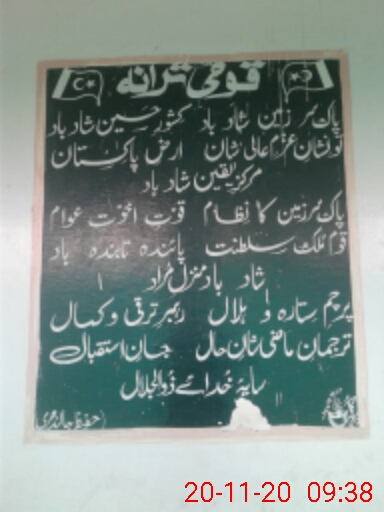 قومی ترانہ
پاک سر زمین شاد باد کشور حسین شاد باد
تو نشان عزم عالی شان ارض پاکستان
مرکز یقین شاد باد
پاک سر زمین کا نظام قوت اخوت عوام
قوم ملک سلطنت پائندہ تابندہ باد
شاد باد منزل مراد
پرچم ستارہ و ہلال رہبر ترقی و کمال
ترجمان ماضی شان حال جان استقبال
سایۂ خدائے ذوالجلال
حفیظ جالندھری
20-11-20 09:38